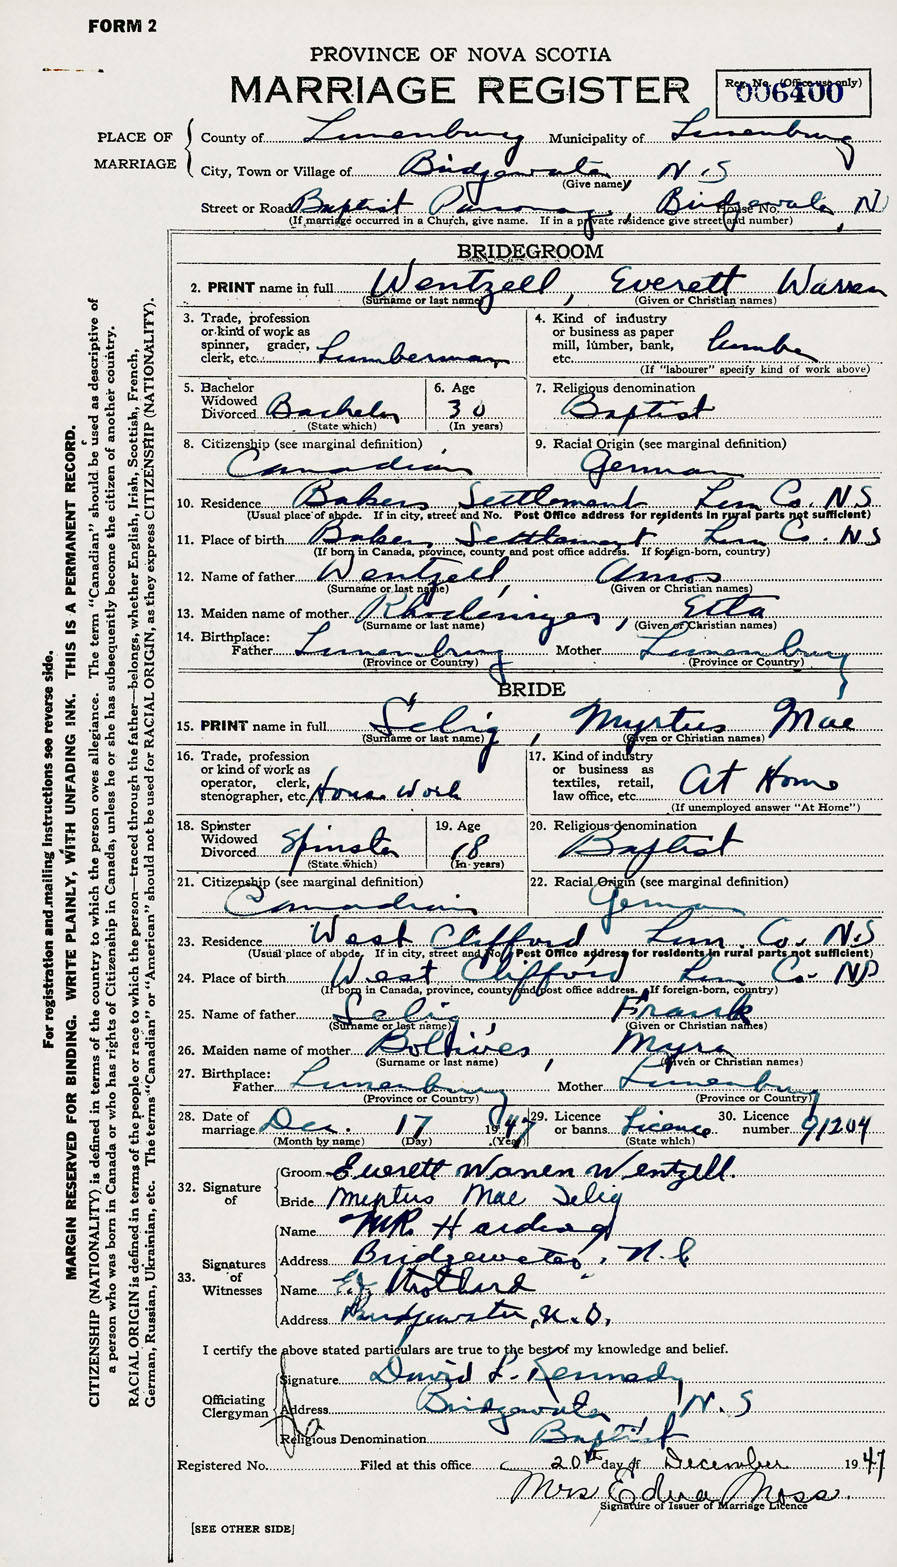 FORM 2
PROVINCE OF NOVA SCOTIA
MARRIAGE REGISTER
Reg. No. (Office use only)
006400
PLACE OF MARRIAGE
County of Lunenburg Municipality of Lunenburg
City, Town or Village of Bridgewater N.S
(Give name)
Street or Road Baptist Parsonage, Bridgewater, N House No.
(If marriage occurred in a Church, give name. If in a private residence give street and number)
BRIDEGROOM
2. PRINT name in full Wentzell, Everett Warren
(Surname or last name) (Given or Christian names)
3. Trade, profession or kind of work as spinner, grader, clerk, etc. Lumberman
4. Kind of industry or business as paper mill, lumber, bank, etc. Lumber
(If "labourer" specify kind of work above)
5. Bachelor Widowed Divorced Bachelor
(State which)
6. Age 30
(In years)
7. Religious denomination
Baptist
8. Citizenship (see marginal definition)
Canadian
9. Racial Origin (see marginal definition)
German
10. Residence Bakers Settlement Lun Co. N S
(Usual place of abode. If in city, street and No. Post Office address for residents in rural parts not sufficient)
11. Place of birth Bakers Settlement Lun Co. N S
(If born in Canada, province, county and post office address. If foreign-born, country)
12. Name of father Wentzell, Amos
(Surname or last name) (Given or Christian names)
13. Maiden name of mother Rhodenizer, Etta
(Surname or last name) (Given or Christian names)
14. Birthplace:
Father Lunenburg Mother Lunenburg
(Province or Country) (Province or Country)
BRIDE
15. PRINT name in full Selig, Myrtus Mae
(Surname or last name) (Given or Christian names)
16. Trade, profession or kind of work as operator, clerk, stenographer, etc. House Work
17. Kind of industry or business as textiles, retail, law office, etc. At Home
(If unemployed answer "At Home")
18. Spinster Widowed Divorced Spinster
(State which)
19. Age 18
(In years)
20. Religious denomination
Baptist
21. Citizenship (see marginal definition)
Canadian
22. Racial Origin (see marginal definition)
German
23. Residence West Clifford Lun. Co. N.S
(Usual place of abode. If in city, street and No. Post Office address for residents in rural parts not sufficient)
24. Place of birth West Clifford Lun Co. NS
(If born in Canada, province, county and post office address. If foreign-born, country)
25. Name of father Selig, Frank
(Surname or last name) (Given or Christian names)
26. Maiden name of mother Myra
(Surname or last name) (Given or Christian names)
27. Birthplace:
Father Lunenburg Mother Lunenburg
(Province or Country) (Province or Country)
28. Date of marriage Dec. 17 1947
(Month by name) (Day) (Year)
29. Licence or banns Licence
(State which)
30. Licence number 91204
32. Signature of
Groom Everett Warren Wentzell.
Bride Myrtus Mae Selig
33. Signatures of Witnesses
Name Harding
Address Bridgewater, N.S
Name E.J. Stothard
Address Bridgewater, N.S.
I certify the above stated particulars are true to the best of my knowledge and belief.
Officiating Clergyman
Signature David L. Kennedy
Address Bridgewater N.S
Religious Denomination Baptist
Registered No. Filed at this office 20th day of December 1947
Mrs Edna Moss.
Signature of Issuer of Marriage Licence
[SEE OTHER SIDE]
For registration and mailing instructions see reverse side.
MARGIN RESERVED FOR BINDING. WRITE PLAINLY, WITH UNFADING INK. THIS IS A PERMANENT RECORD.
CITIZENSHIP (NATIONALITY) is defined in terms of the country to which the person owes allegiance. The term "Canadian" should be used as descriptive of
a person who was born in Canada or who has rights of Citizenship in Canada, unless he or she has subsequently become the citizen of another country.
RACIAL ORIGIN is defined in terms of the people or race to which the person—traced through the father—belongs, whether English, Irish, Scottish, French,
German, Russian, Ukrainian, etc. The terms "Canadian" or "American" should not be used for RACIAL ORIGIN, as they express CITIZENSHIP (NATIONALITY).